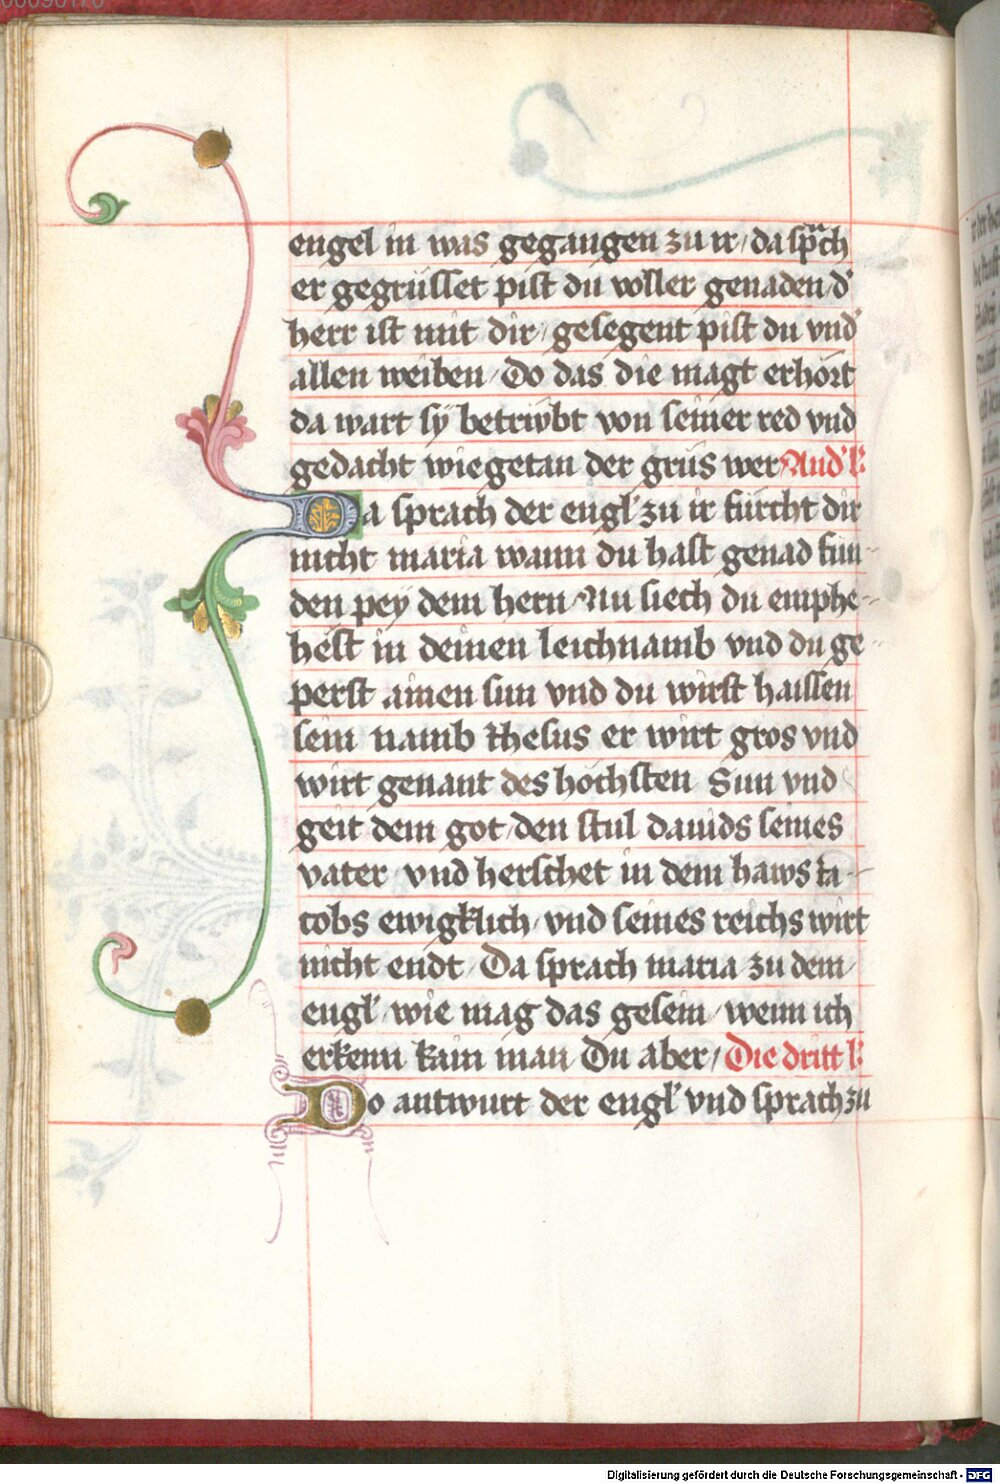 engel in was gegangen zu ir / da sprach
er gegrüsset pist du voller genaden / d'
herr ist mit dir / gesegent pist du vnd'
allen weiben / Do das die magt erhört
da wart sÿ betrwbt von seiner red vnd
gedacht wie getan der grüs wer / And' l:
Da sprach der engl' zu ir fürcht dir
nicht maria wann du hast genad fun-
den pey dem hern / Nu siech du emphe-
hest in deinen leichnamb vnd du ge-
perst ainen sun vnd du wirst haissen
sein namb Ihesus er wirt gros vnd
wirt genant des höchsten Sun vnd
geit dem got / den stul dauids seines
vater / vnd herschet in dem haws ia-
cobs ewigklich / vnd seines reichs wirt
nicht endt / Da sprach maria zu dem /
engl' / wie mag das gesein / wenn ich
erkenn kain man Du aber / Die dritt l:
Do antwurt der engl' vnd sprach zu
Digitalisierung gefördert durch die Deutsche Forschungsgemeinschaft - DFG